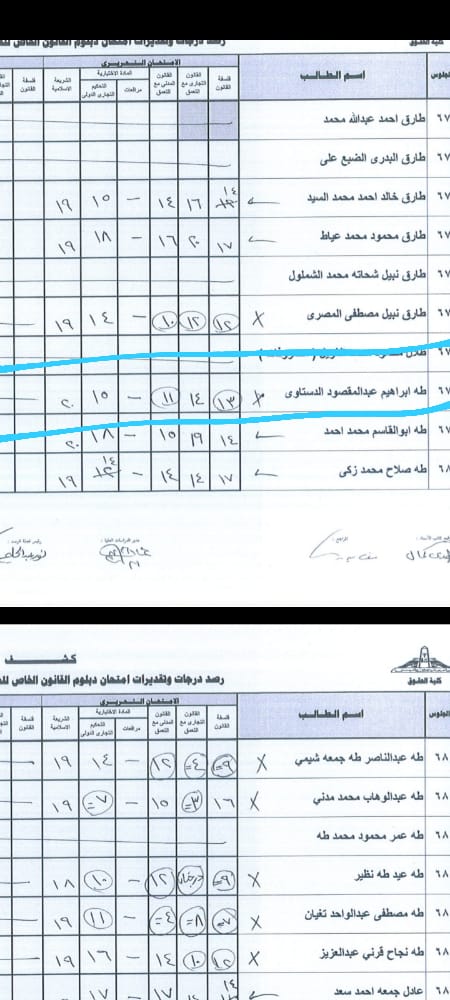 كلية الحقوق
رصد درجات وتقديرات امتحان دبلوم القانون الخاص
الجلوس
اسم الطالب
الامتحان التحريري
فلسفة القانون
القانون التجارى مع التعمق
القانون المدنى مع التعمق
المادة الاختيارية
مرافعات
التحكيم التجارى الدولى
الشريعة الاسلامية
فلسفة القانون
٦٧ طارق احمد عبدالله محمد
٦٧ طارق البدرى الضبع على
٦٧ طارق خالد احمد محمد السيد ١٤ ١٦ ١٤ — ١٥ ١٩
٦٧ طارق محمود محمد عياط ١٧ ٢٠ ١٦ — ١٨ ١٩
٦٧ طارق نبيل شحاته محمد الشملول
٦٧ طارق نبيل مصطفى المصرى X ١٢ ١٢ ١٠ — ١٤ ١٩
٦٧
٦٧ طه ابراهيم عبدالمقصود الدستاوى X ١٣ ١٤ ١١ — ١٥ ٢٠
٦٧ طه ابوالقاسم محمد احمد ١٤ ١٩ ١٥ — ١٨ ٢٠
٦٨ طه صلاح محمد زكى ١٧ ١٤ ١٤ — ١٤ ١٩
كشف
كلية الحقوق
رصد درجات وتقديرات امتحان دبلوم القانون الخاص
الجلوس
اسم الطالب
الامتحان التحريري
فلسفة القانون
القانون التجارى مع التعمق
القانون المدنى مع التعمق
المادة الاختيارية
مرافعات
التحكيم التجارى الدولى
الشريعة الاسلامية
فلسفة القانون
٦٨ طه عبدالناصر طه جمعه شيمي X =٩ =٤ ١٢ — ١٤ ١٩
٦٨ طه عبدالوهاب محمد مدني X ١٦ =٣ ١٥ — =٧ ١٩
٦٨ طه عمر محمود محمد طه
٦٨ طه عيد طه نظير X =٩ ١٢ — ١٠ ١٨
٦٨ طه مصطفى عبدالواحد تغيان X =٧ =٨ =٤ — ١١ ١٩
٦٨ طه نجاح قرني عبدالعزيز X ١٢ ١٠ ١٤ — ١٦ ١٩
عادل جمعه احمد سعد ١٤